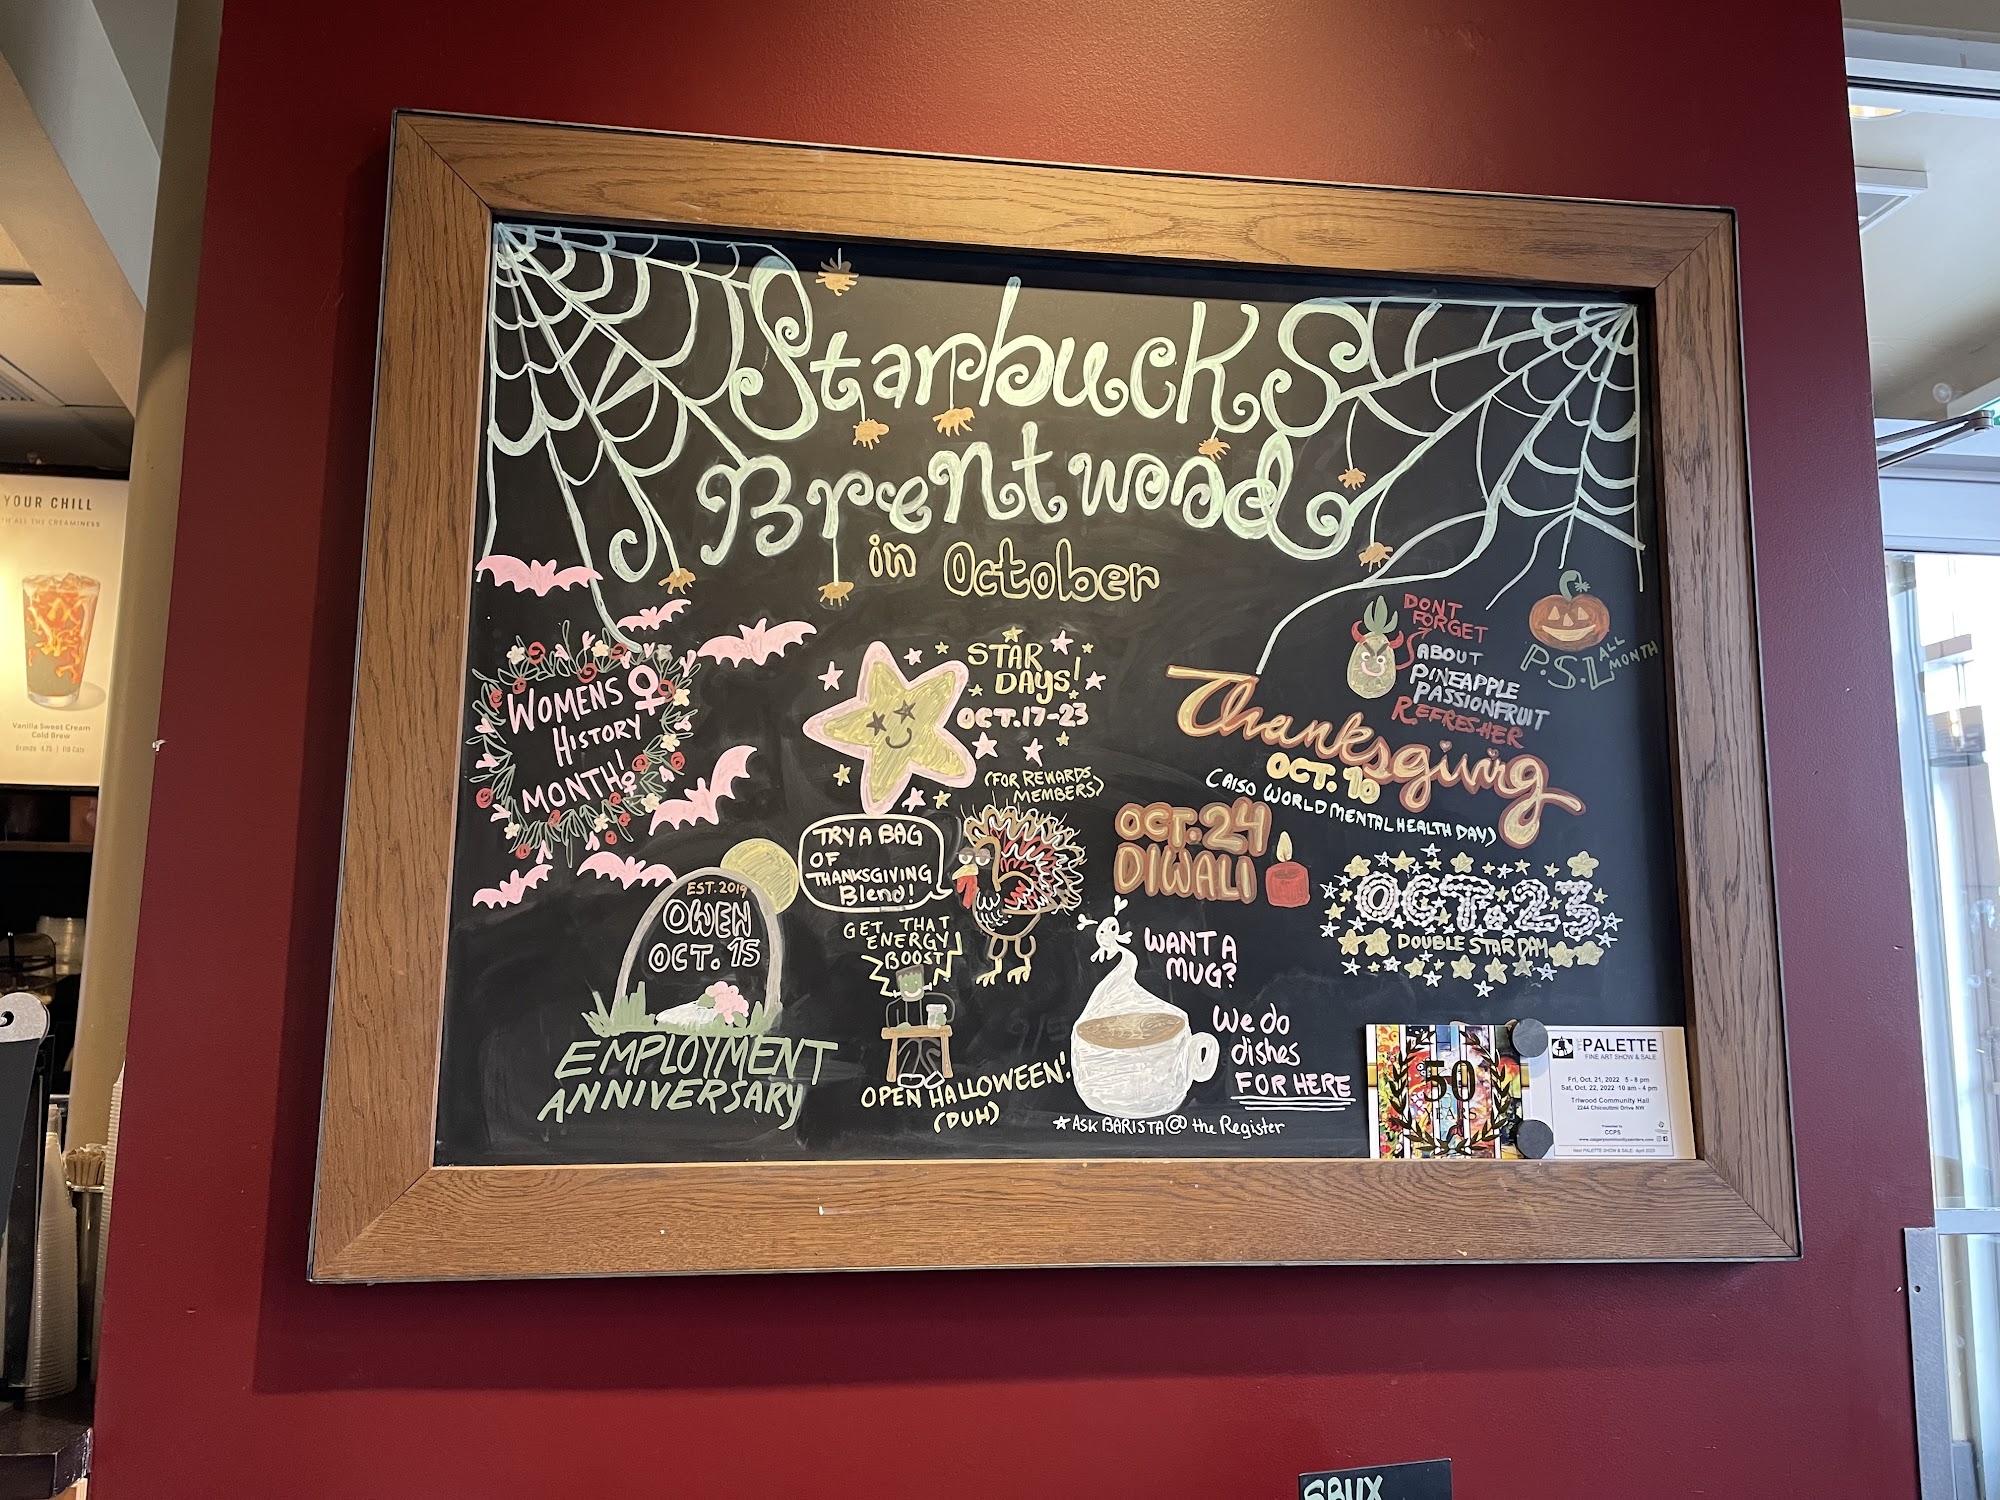 Starbucks
Brentwood
in October
WOMENS
HISTORY
MONTH!
STAR
DAYS!
OCT.17-23
(FOR REWARDS
MEMBERS)
DONT
FORGET
ABOUT
PINEAPPLE
PASSIONFRUIT
REFRESHER
P.S.L
ALL
MONTH
Thanksgiving
OCT. 10
(AlSO WORLD MENTAL HEALTH DAY)
TRY A BAG
OF
THANKSGIVING
Blend!
OCT.24
DIWALI
OCT.23
DOUBLE STAR DAY
EST. 2019
OWEN
OCT. 15
EMPLOYMENT
ANNIVERSARY
GET THAT
ENERGY
BOOST
OPEN HALLOWEEN!
(DUH)
WANT A
MUG?
We do
dishes
FOR HERE
*ASK BARISTA @ the Register
50
YEARS
PALETTE
FINE ART SHOW & SALE
Fri, Oct. 21, 2022 5 - 8 pm
Sat, Oct. 22, 2022 10 am - 4 pm
Triwood Community Hall
2244 Chicoutimi Drive NW
Presented by
CCPS
Next PALETTE SHOW & SALE: April 2023
YOUR CHILL
ALL THE CREAMINESS
Vanilla Sweet Cream
Cold Brew
Grande 4.75 | 110 Cals
SBUX